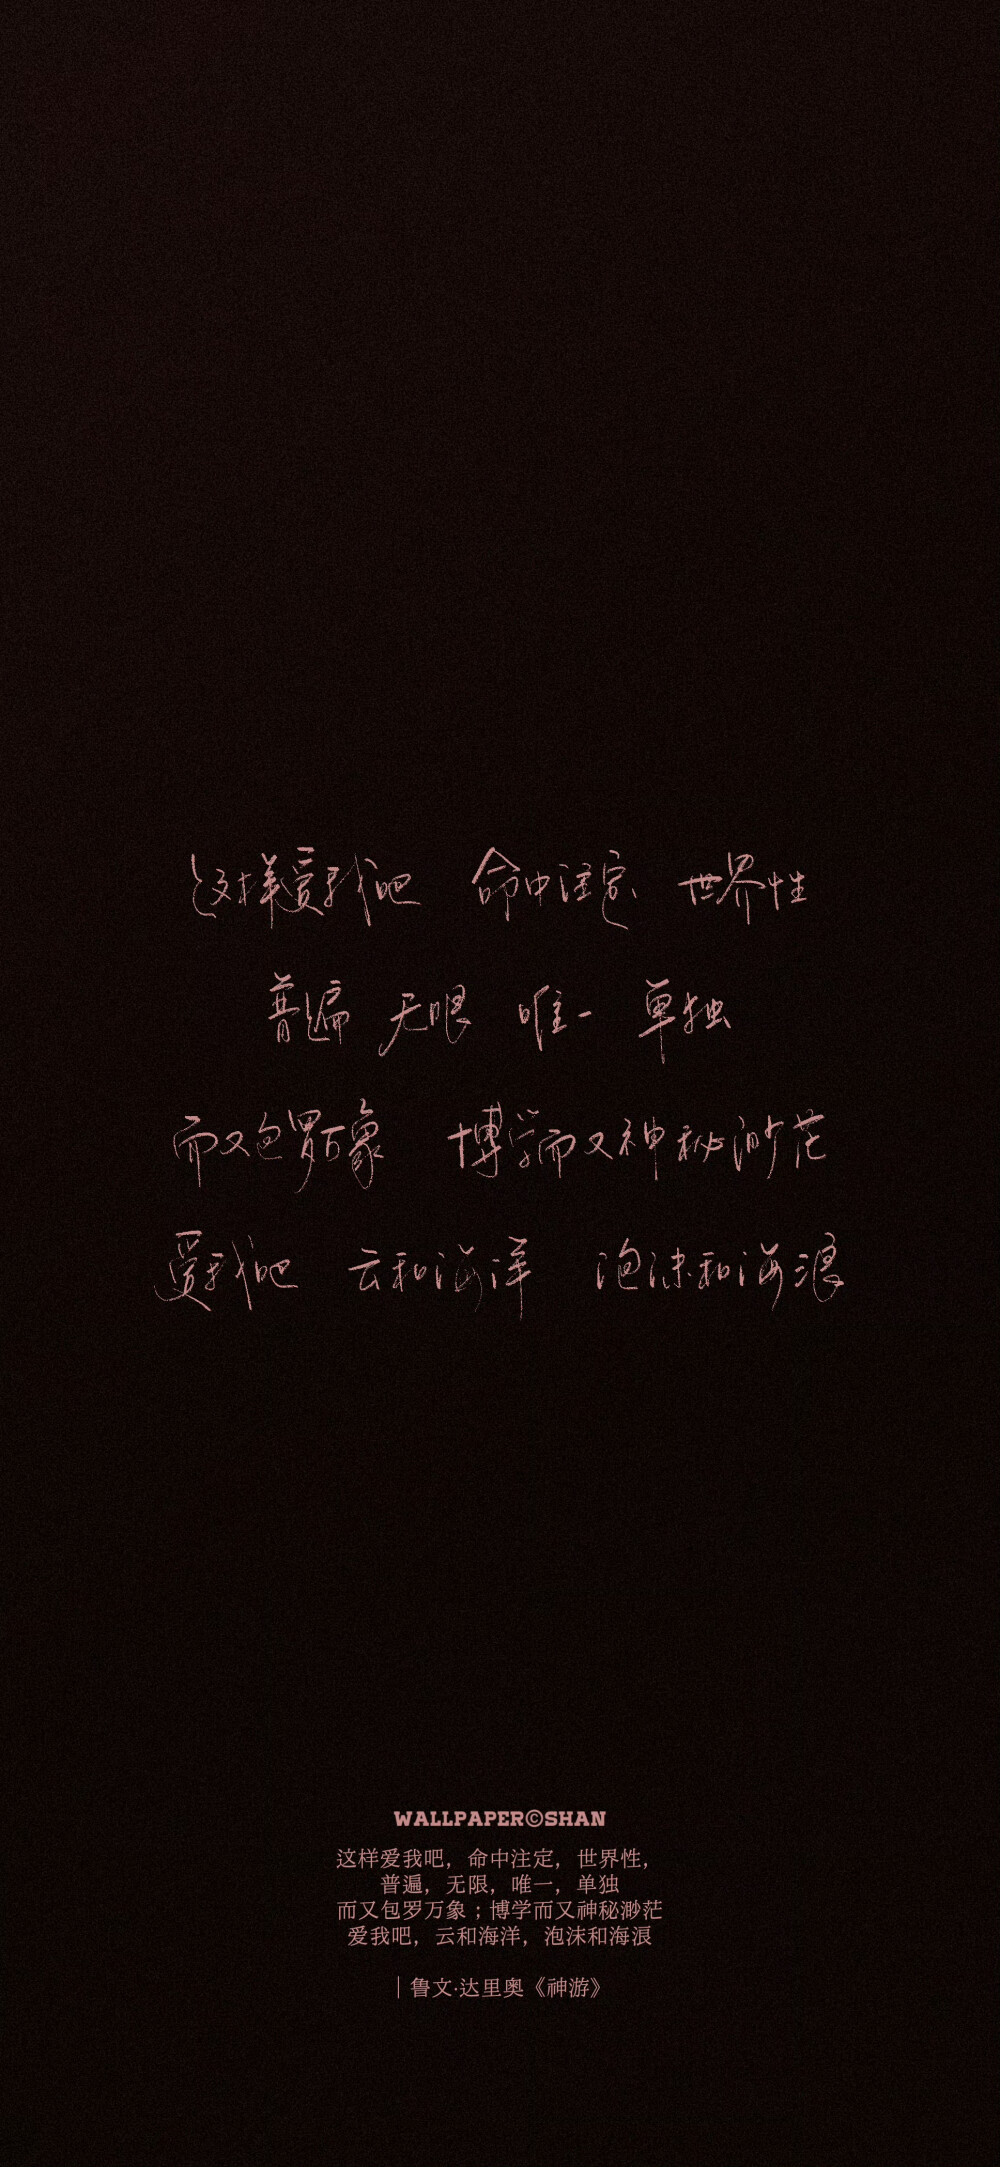 这样爱我吧 命中注定 世界性
普遍 无限 唯一 单独
而又包罗万象 博学而又神秘渺茫
爱我吧 云和海洋 泡沫和海浪
WALLPAPER©SHAN
这样爱我吧，命中注定，世界性，
普遍，无限，唯一，单独
而又包罗万象；博学而又神秘渺茫
爱我吧，云和海洋，泡沫和海浪
｜鲁文·达里奥《神游》